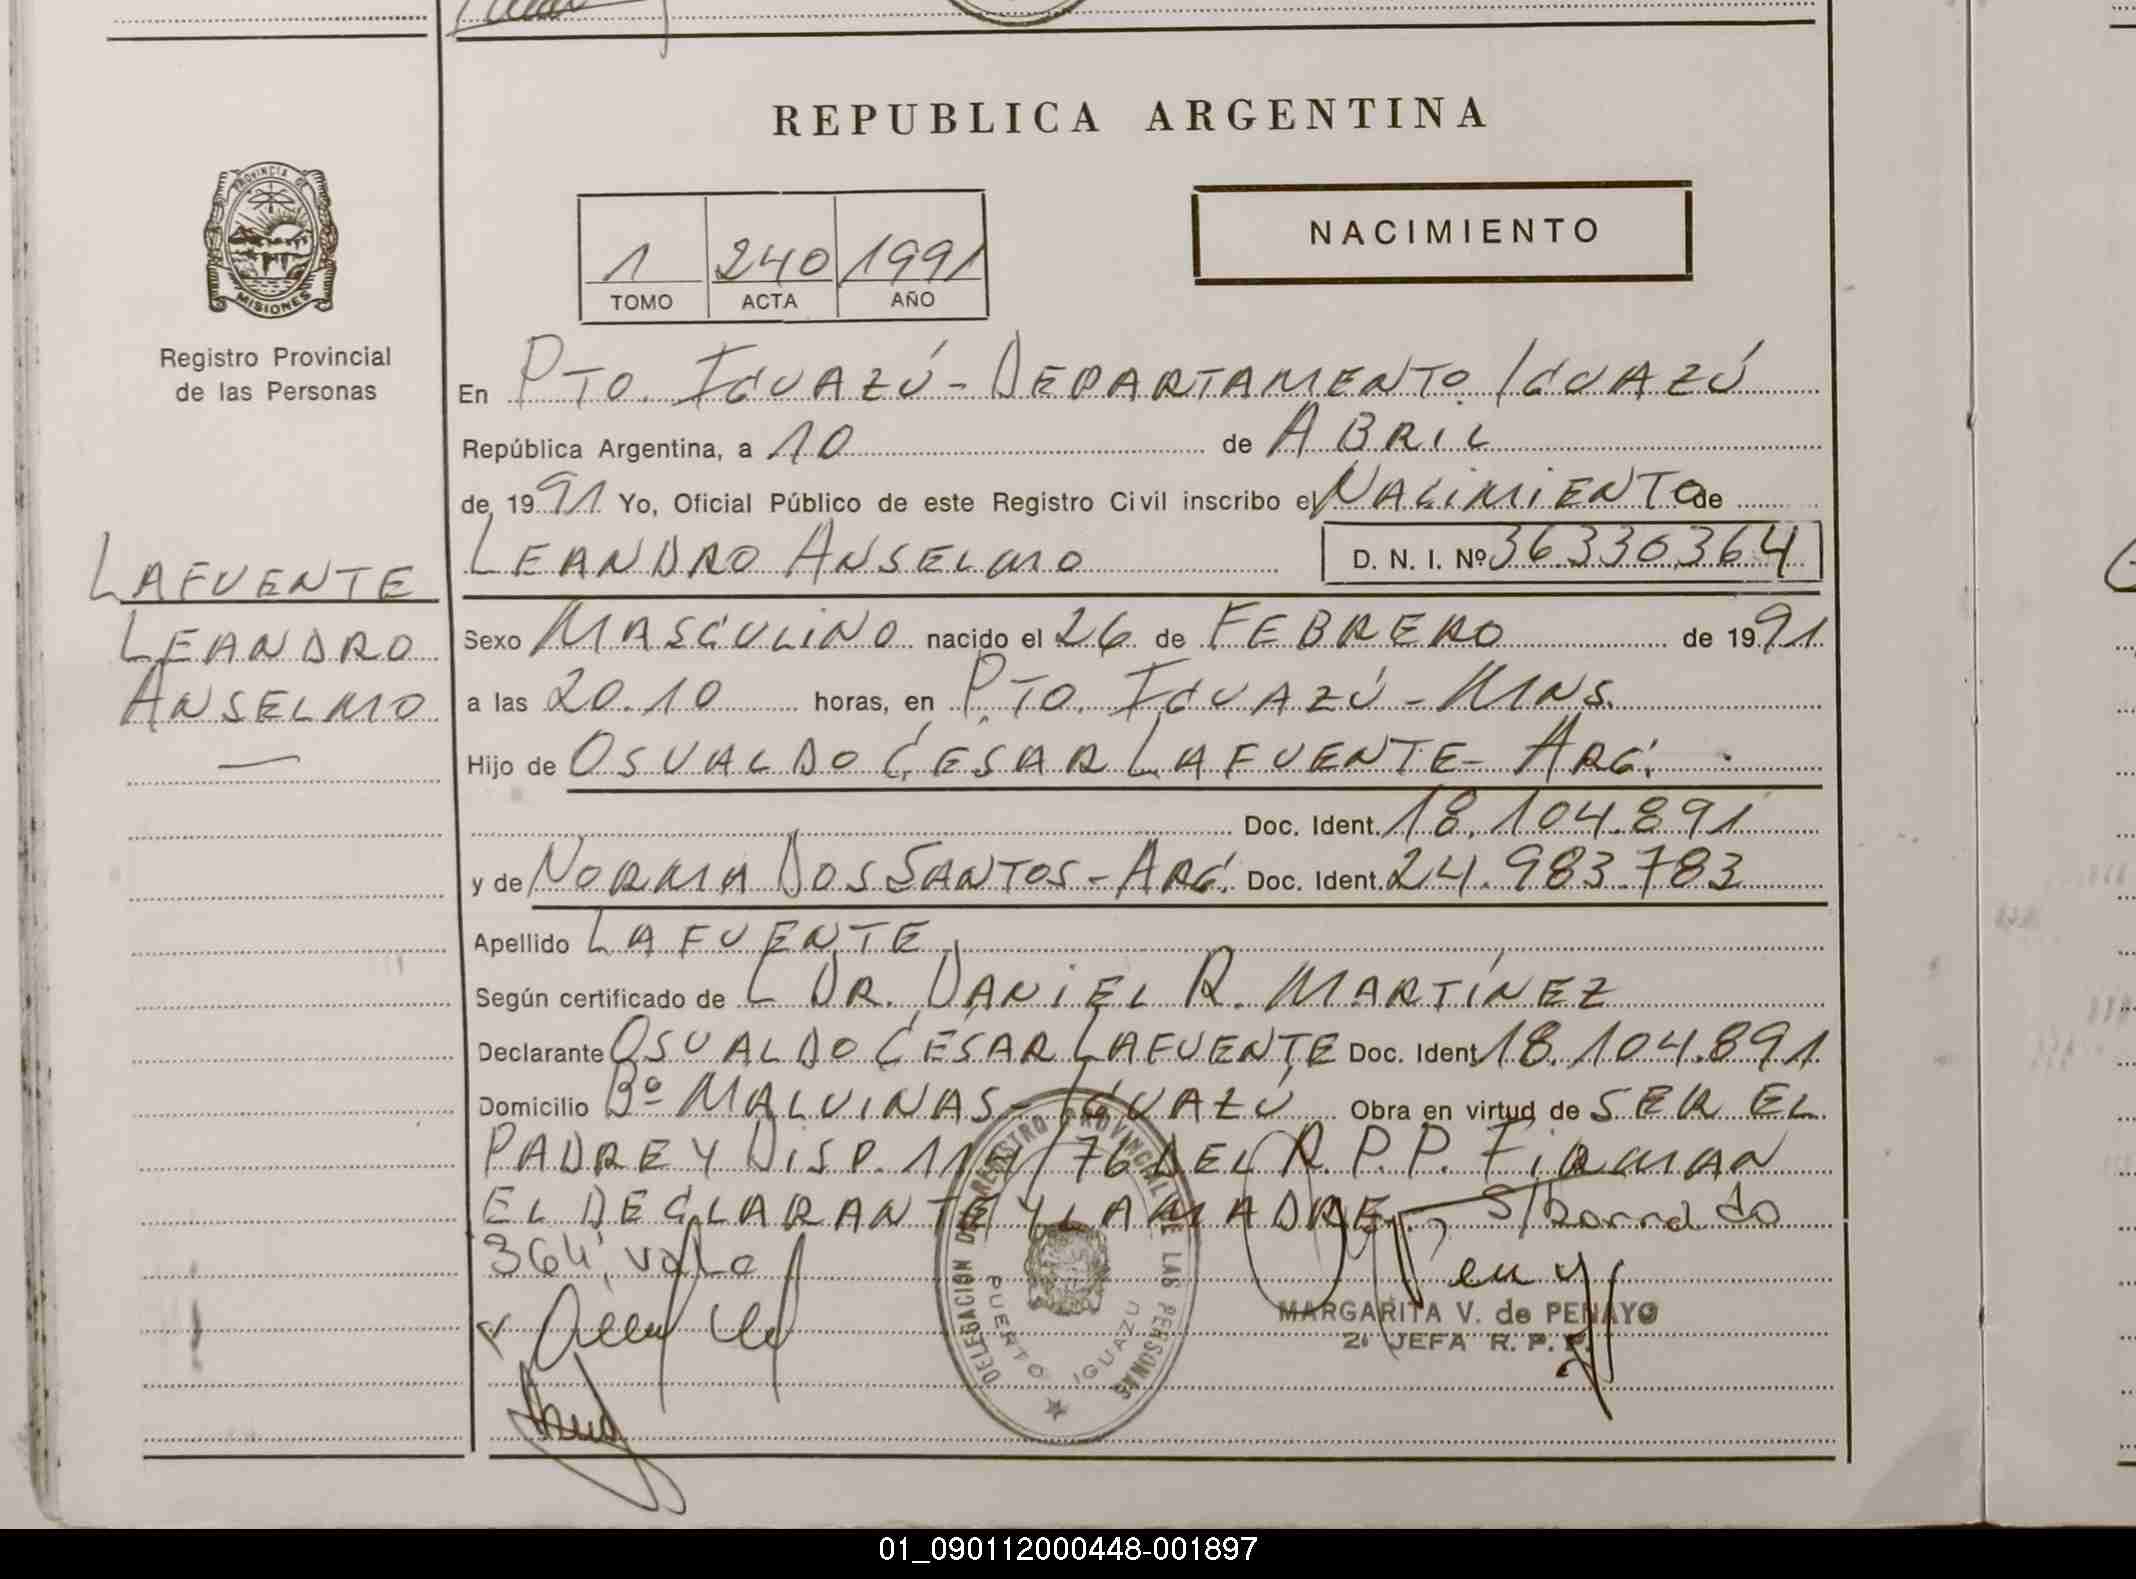 REPUBLICA ARGENTINA
PROVINCIA DE MISIONES
1 240 1991
TOMO ACTA AÑO
NACIMIENTO
Registro Provincial
de las Personas
En PTO. IGUAZÚ - DEPARTAMENTO IGUAZÚ
República Argentina, a 10 de ABRIL
de 1991 Yo, Oficial Público de este Registro Civil inscribo el NACIMIENTO de
LEANDRO ANSELMO D. N. I. Nº 36330364
LAFUENTE
LEANDRO
ANSELMO
Sexo MASCULINO nacido el 26 de FEBRERO de 1991
a las 20.10 horas, en PTO. IGUAZÚ - MNS.
Hijo de OSVALDO CÉSAR LAFUENTE - ARG.
Doc. Ident. 18.104.891
y de NORMA DOS SANTOS - ARG. Doc. Ident. 24.983.783
Apellido LAFUENTE
Según certificado de L DR. DANIEL R. MARTÍNEZ
Declarante OSVALDO CÉSAR LAFUENTE Doc. Ident 18.104.891
Domicilio Bº MALVINAS - IGUAZÚ Obra en virtud de SER EL
PADRE Y DISP. /76 DEL R.P.P. FIRMAN
EL DECLARANTE Y LA MADRE. S/borrado
"364", vale
DELEGACION DEL REGISTRO PROVINCIAL DE LAS PERSONAS
PUERTO IGUAZU
MARGARITA V. de PENAYO
2ª JEFA R. P. P.
01_090112000448-001897